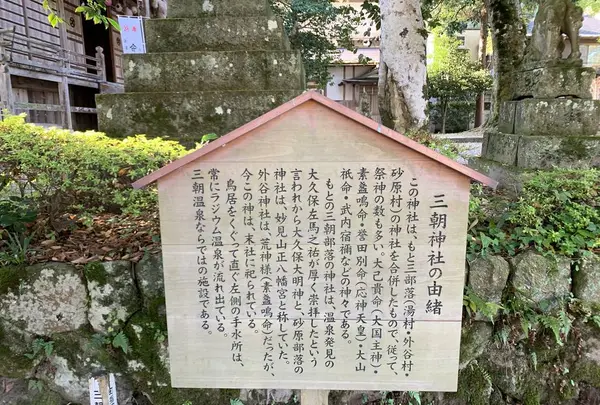 三朝神社の由緒
この神社は、もと三部落（湯村・外谷村・
砂原村）の神社を合併したもので、従って、
祭神の数も多い。大己貴命（大国主神）・
素盞鳴命・誉田別命（応神天皇）・大山
祇命・武内宿禰などの神々である。
もとの三朝部落の神社は、温泉発見の
大久保左馬之祐が厚く崇拝したという
言われから大久保大明神と、砂原部落の
神社は、妙見山正八幡宮と称していた。
外谷神社は、荒神様（素盞鳴命）だったが、
今この神は、末社に祀られている。
鳥居をくぐって直ぐ左側の手水所は、
常にラジアム温泉が流れ出ている。
三朝温泉ならではの施設である。
三朝